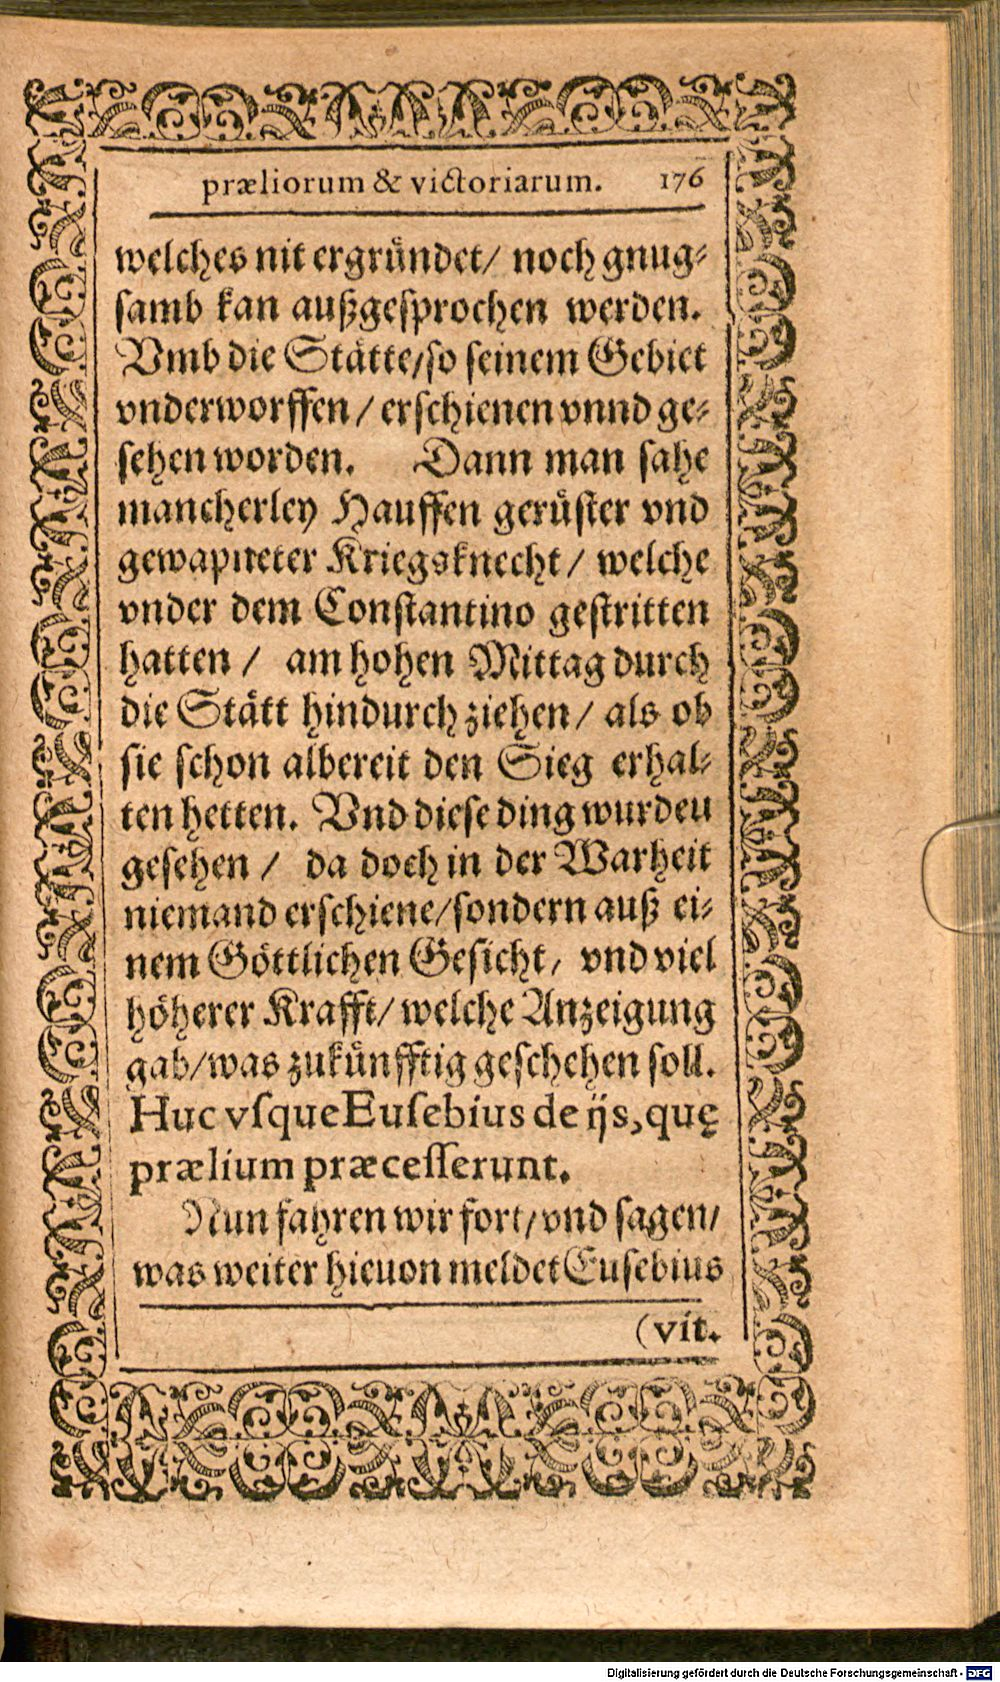 præliorum & victoriarum. 176
welches nit ergründet/ noch gnug-
samb kan außgesprochen werden.
Vmb die Stätte/so seinem Gebiet
vnderworffen/ erschienen vnnd ge-
sehen worden. Dann man sahe
mancherley Hauffen gerüster vnd
gewapneter Kriegsknecht/ welche
vnder dem Constantino gestritten
hatten/ am hohen Mittag durch
die Stätt hindurch ziehen/ als ob
sie schon albereit den Sieg erhal-
ten hetten. Vnd diese ding wurden
gesehen/ da doch in der Warheit
niemand erschiene/sondern auß ei-
nem Göttlichen Gesicht/ vnd viel
höherer Krafft/ welche Anzeigung
gab/was zukünfftig geschehen soll.
Huc vſque Euſebius de ijs, quę
prælium præceſſerunt.
Nun fahren wir fort/vnd sagen/
was weiter hieuon meldet Eusebius
(vit.
Digitalisierung gefördert durch die Deutsche Forschungsgemeinschaft - DFG